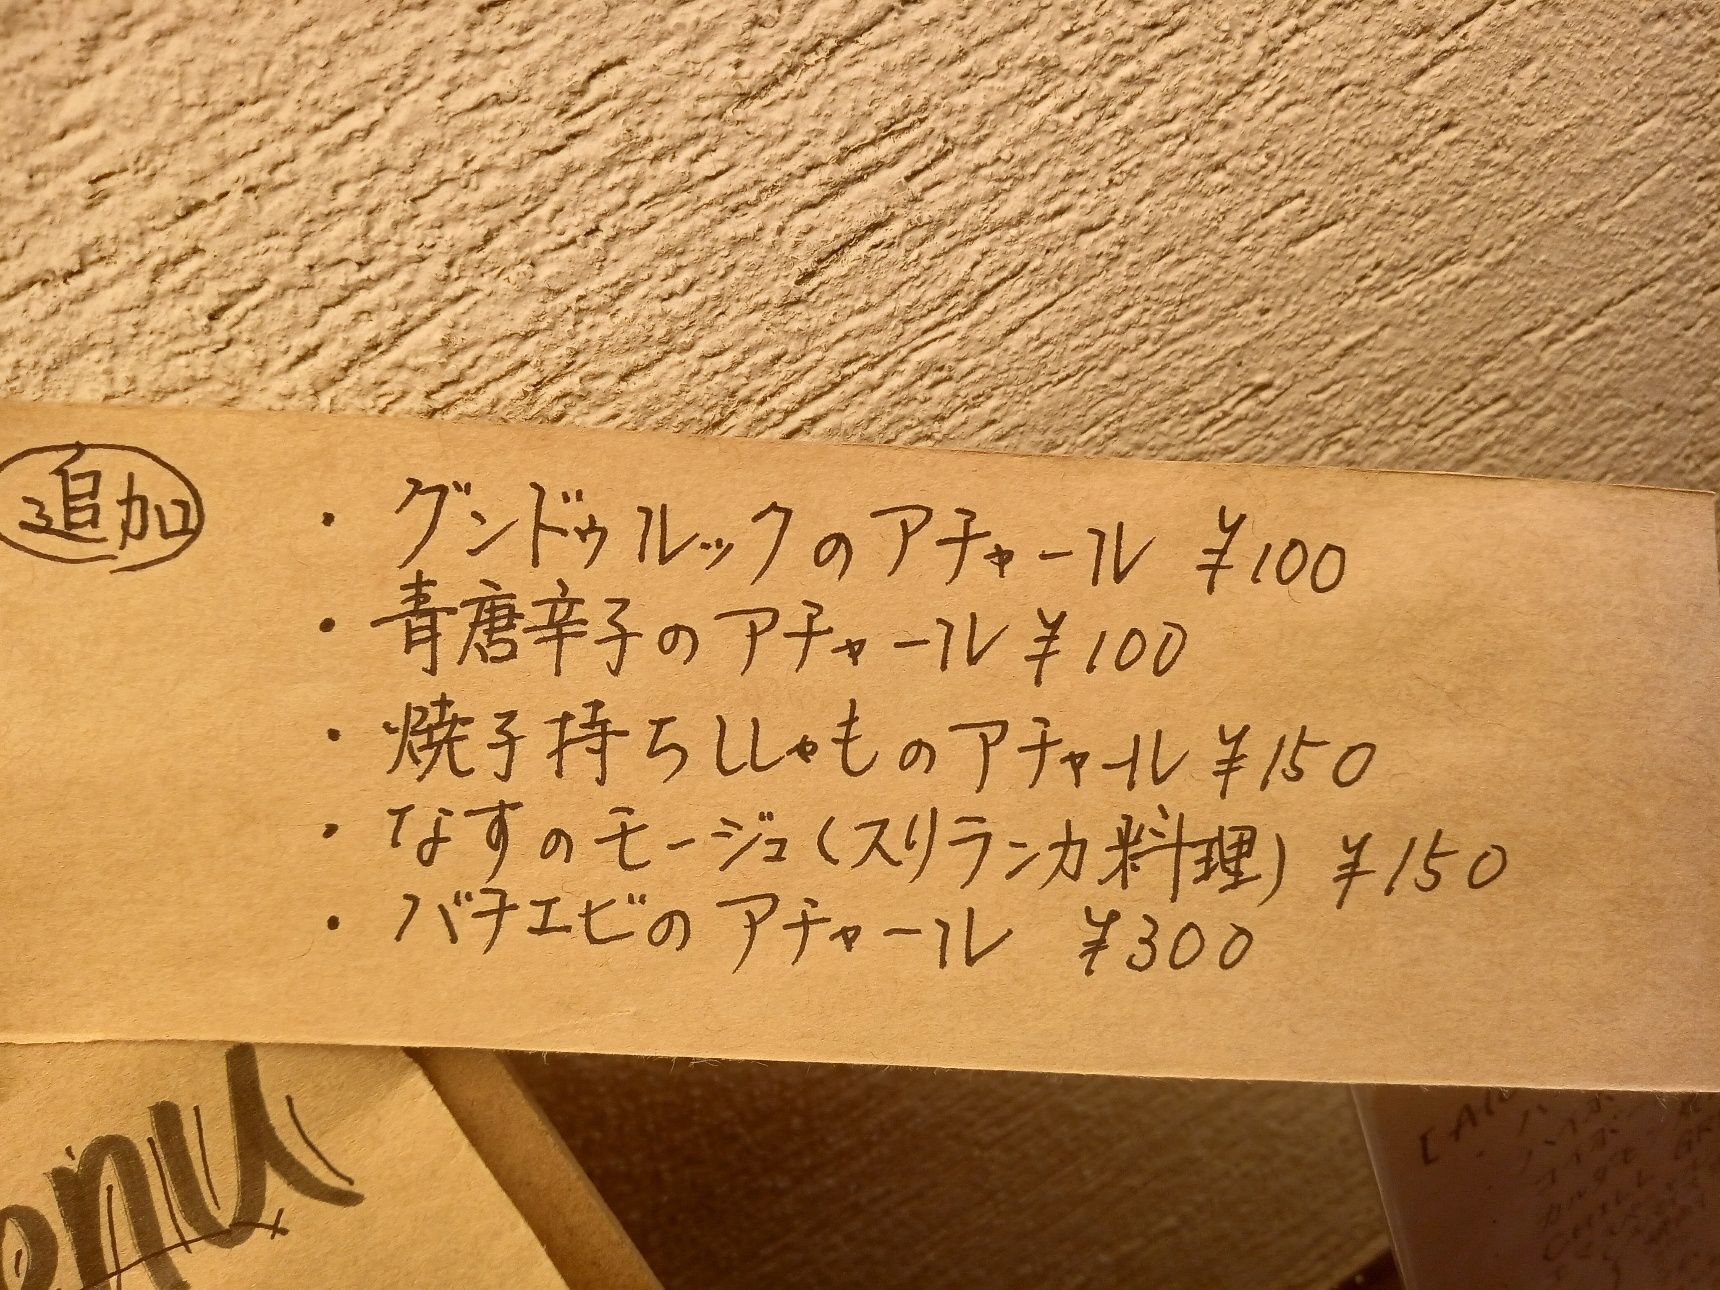 追加
・グンドゥルックのアチャール ¥100
・青唐辛子のアチャール ¥100
・焼子持ちししゃものアチャール ¥150
・なすのモージュ(スリランカ料理) ¥150
・バナエビのアチャール ¥300
enu